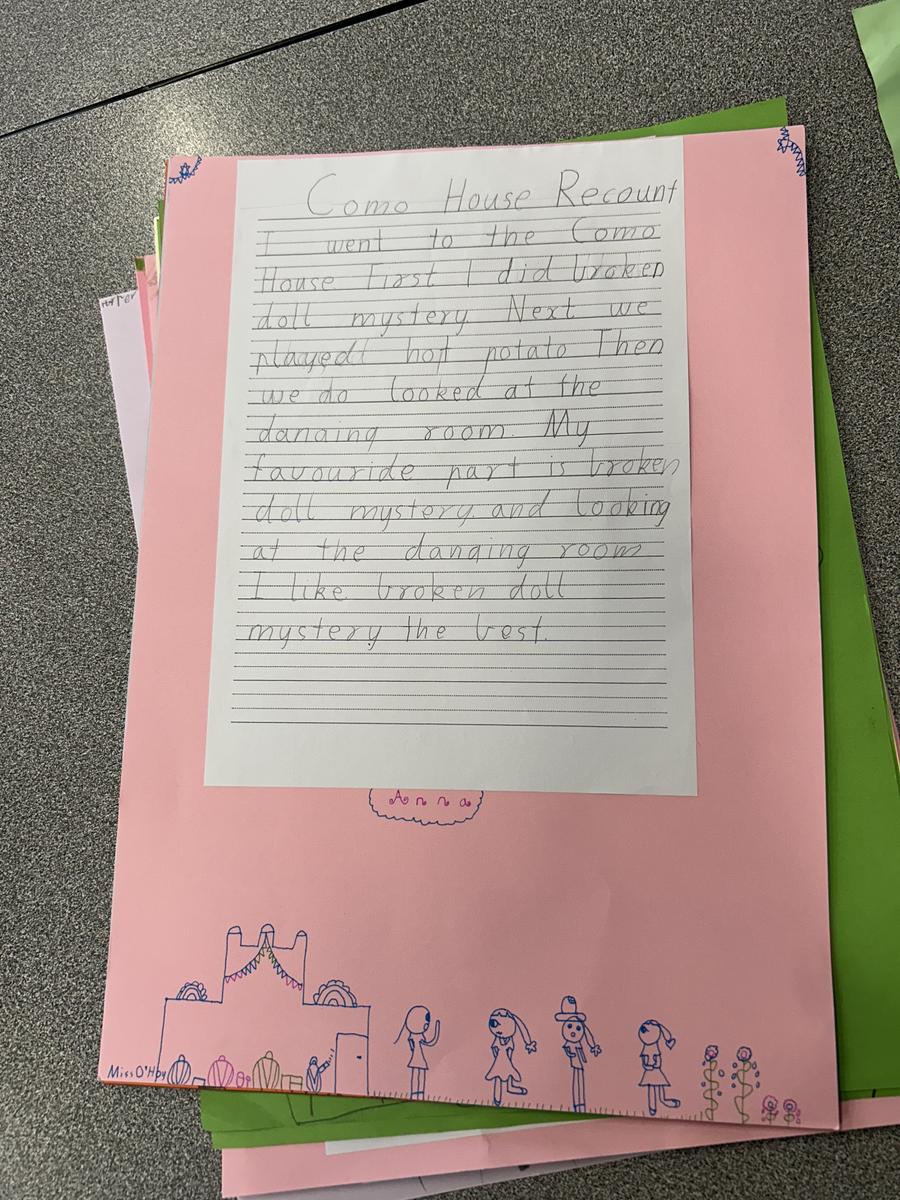 Como House Recount
I went to the Como
House First I did broken
doll mystery Next we
played hot potato Then
we do looked at the
danding room. My
favouride part is broken
doll mystery and looking
at the danding room
I like broken doll
mystery the best.
Anna
Miss O'H